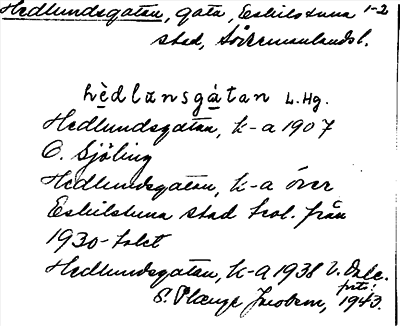 Hedlundsgatan, gata, Eskilstuna 1-2
stad, Södermanlands l.
hèdlansgàtan L. Hg.
Hedlundsgatan, k-a 1907
O. Sjöling
Hedlundsgatan, k-a över
Eskilstuna stad kol. från
1930-talet
Hedlundsgatan, k-a 1938
forts:
S. Plænge Jacobson, 1943.